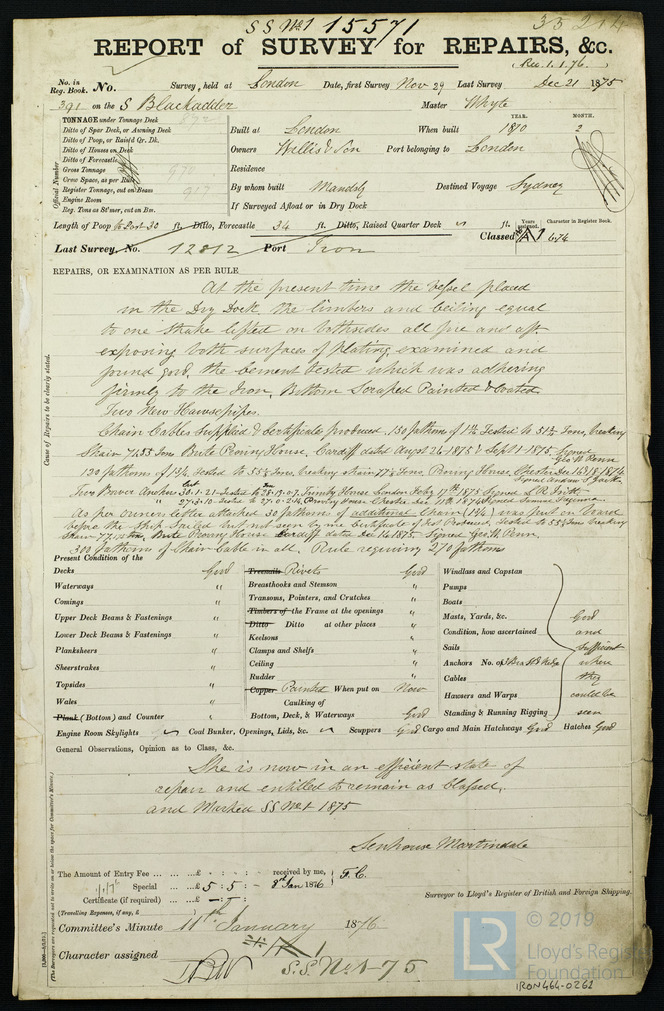 SS No 1 15571
REPORT of SURVEY for REPAIRS, &c.
(Rec. 1.1.76.)
No. in Reg. Book. No. Survey, held at London Date, first Survey Nov 29 Last Survey Dec 21 1875
391 on the S Blackadder Master Whyte
TONNAGE under Tonnage Deck
Ditto of Spar Deck, or Awning Deck
Ditto of Poop, or Raised Qr. Dk.
Ditto of Houses on Deck
Ditto of Forecastle
Gross Tonnage
Crew Space, as per Rule
Register Tonnage, cut on Beam
Engine Room
Reg. Tons as St'mer, cut on Bm.
Official Number
YEAR. MONTH.
Built at London When built 1870 2
Owners Wallis & Son Port belonging to London
Residence
By whom built Destined Voyage Sydney
If Surveyed Afloat or in Dry Dock
Length of Poop 30 ft. Ditto, Forecastle 34 ft. Ditto, Raised Quarter Deck ft.
Years assigned. Character in Register Book.
Classed A1 6.74
Last Survey, No. 12812 Port Iron
REPAIRS, OR EXAMINATION AS PER RULE
Cause of Repairs to be clearly stated.
At the present time the vessel placed
in the Dry Dock, the limbers and ceiling equal
to one strake lifted on both sides all fore and aft
exposing both surfaces of plating, examined and
found good, the cement tested which was adhering
firmly to the Iron, Bottom Scraped Painted & Coated
Two New Hawsepipes.
Chain Cables Supplied & Certificate produced. 150 fathoms of Tested to 51 Tons, breaking
Strain Tons Bute Proving House, Cardiff dated Augst 26 1875 & Sept 1 1875 Signed
Geo. W. Penn
120 fathoms of 1 3/4 Tested to 55 Tons, breaking strain 77 Tons Proving House, Chester Dec 1874
Signed Andrew
Two Bower Anchors 30.1.21 Tested to Trinity House London Feby 17th 1875 Signed
27.3.10 Tested to 27.0.2.14, Proving House Chester Dec 1874 Signed
As per owners letter attached 30 fathoms of additional Chain (1 3/4) was put on board
before the Ship Sailed but not seen by me Certificate of Test Produced, Tested to 55 Tons breaking
Strain 77 Tons, Bute Proving House Cardiff dated Dec 14 1875, Signed Geo. W. Penn.
300 fathoms of Chain Cable in all. Rule requiring 270 fathoms
Present Condition of the
Decks Good
Waterways "
Comings "
Upper Deck Beams & Fastenings "
Lower Deck Beams & Fastenings "
Planksheers "
Sheerstrakes "
Topsides "
Wales "
Plank (Bottom) and Counter "
Treenails Rivets Good
Breasthooks and Stemson "
Transoms, Pointers, and Crutches "
Timbers of the Frame at the openings "
Ditto Ditto at other places "
Keelsons "
Clamps and Shelfs "
Ceiling "
Rudder "
Copper Painted When put on Now
Caulking of
Bottom, Deck, & Waterways Good
Windlass and Capstan
Pumps
Boats
Masts, Yards, &c.
Condition, how ascertained
Sails
Anchors No. of
Cables
Hawsers and Warps
Standing & Running Rigging
Good
and
sufficient
where
they
could be
seen
Engine Room Skylights Coal Bunker, Openings, Lids, &c. Scuppers Good Cargo and Main Hatchways Good Hatches Good
General Observations, Opinion as to Class, &c.
She is now in an efficient state of
repair and entitled to remain as Classed,
and Marked SS No 1 1875
Senhouse Martindale
The Amount of Entry Fee ... ... £ : : received by me,
Special ... ... £ 5 : 5 : 8th Jan 1876 F.C.
Certificate (if required) ... £
(Travelling Expenses, if any, £
Surveyor to Lloyd's Register of British and Foreign Shipping.
Committee's Minute 11th January 1876
Character assigned
S.S. No 1-75
LR © 2019
Lloyd's Register
Foundation
IRON464-0262